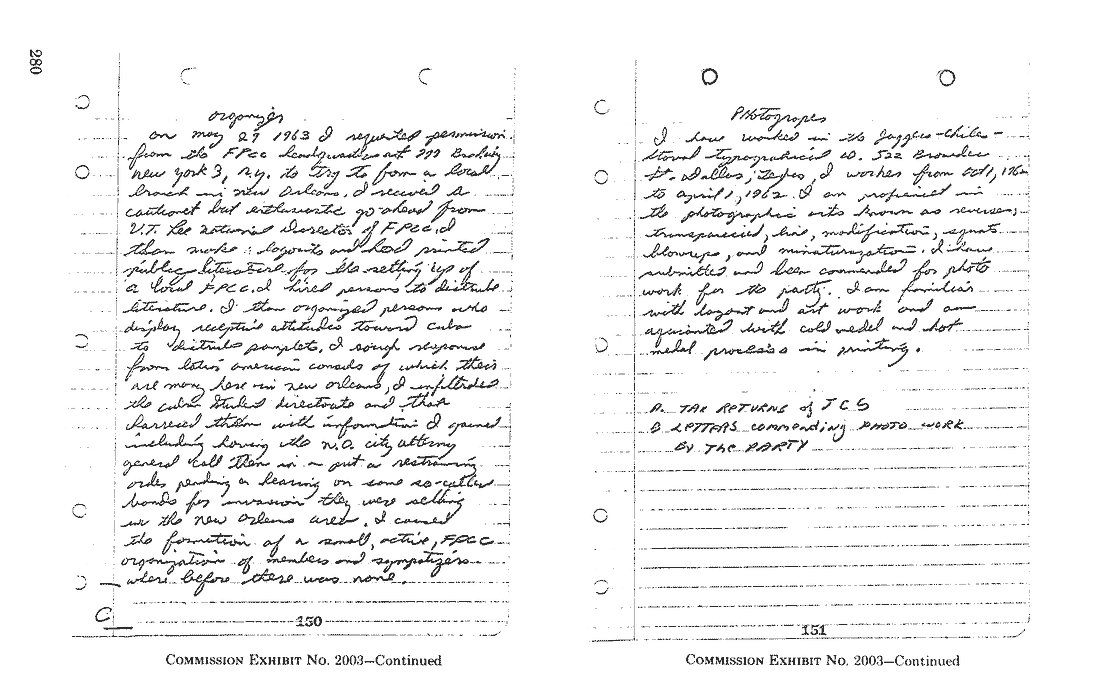 280
organizer
on may 29 1963 I requested permission
from the FPCC headquarters at 799 Broadway
new york 3, n.y. to try to form a local
branch in new orleans. I received a
cautionet but enthusiastic go-ahead from
V.T. Lee national Director of FPCC. I
than made layouts and had printed
public literature for the setting up of
a local FPCC. I hired persons to distribute
literature. I than organized persons who
display receptive attitudes toward cuba
to distribute pamplets. I sough response
from latin american consuls of which their
are many here in new orleans, I infiltrated
the cuban Student directorate and than
harresed them with information I gained
including having the N.O. city attorny
general call them in a put a restraining
order pending a hearing on some so-called
bonds for invasion they were selling
in the new orleans area. I caused
the formation of a small, active, FPCC
organization of members and sympatizers
where before there was none.
C
150
COMMISSION EXHIBIT NO. 2003—Continued
Photograpes
I have worked in the Jaggar-Chiles-
Stoval typographical co. 522 Browder
St. Dallas, Texas, I worked from Oct 1, 1962
to april 1, 1962. I am proficient in
the photographic arts known as reverses,
transparecied, line, modification, squats
blowups, and minaturization. I have
submitted and been commended for photo
work for the party. I am familiar
with layout and art work and am
aquanted with cold medel and hot
medal process's in printing.
A. TAX RETURNS of JCS
B LETTERS commending PHOTO WORK
BY THE PARTY
151
COMMISSION EXHIBIT NO. 2003—Continued